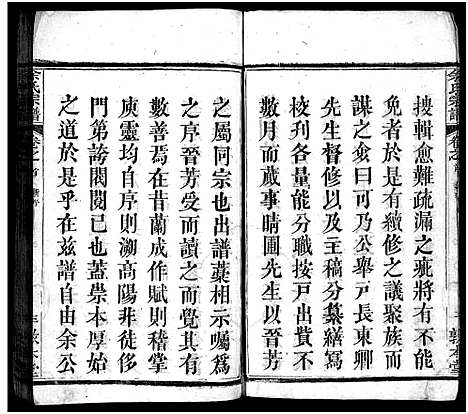 余氏宗譜
卷之首
敦本堂
搜輯愈難疏漏之疵將有不能
免者於是有續修之議聚族而
謀之僉曰可乃公舉戶長東卿
先生督修以及主稿分纂繕寫
校刋各量能分職按戶出貲不
數月而蕆事晴圃先生以芳
之屬同宗也出譜藁相示囑爲
之序晉芳受而讀之而覺其有
數善焉在昔蘭成作賦則稽掌
庾靈均自序則溯高陽非徒尙
門第誇閥閱已也蓋崇本厚始
之道於是乎在玆譜自由余公
余氏宗譜
卷之首
敦本堂